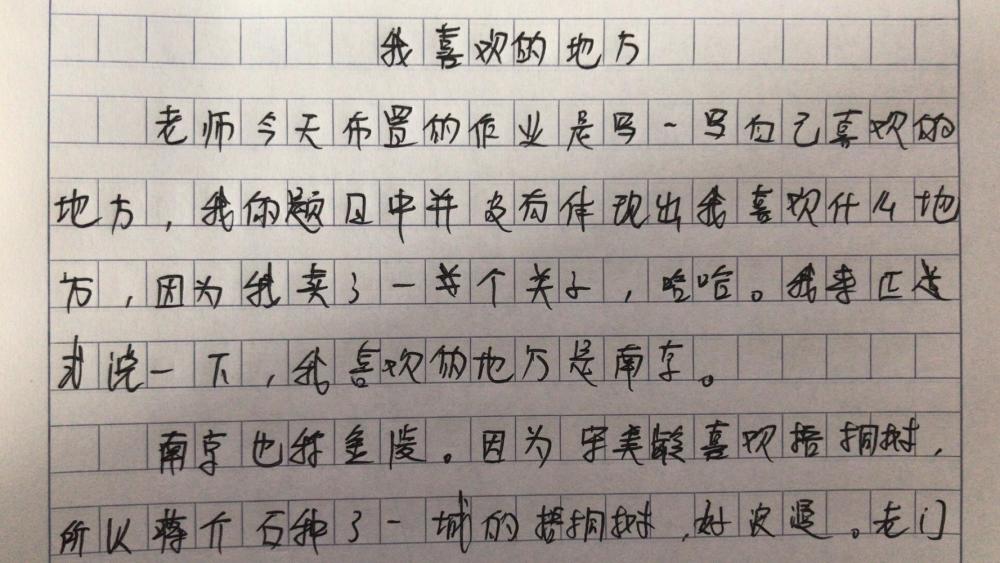 我喜欢的地方
老师今天布置的作业是写一写自己喜欢的
地方，我的题目中并没有体现出我喜欢什么地
方，因为我卖了一个关子，哈哈。我来正
式说一下，我喜欢的地方是南京。
南京也称金陵。因为宋美龄喜欢梧桐树，
所以蒋介石种了一城的梧桐树，好浪漫。老门